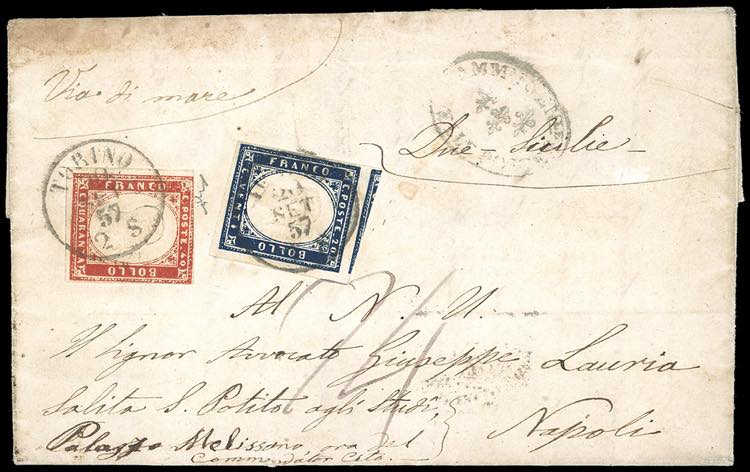 Via di mare
Due - Sicilie -
TORINO
57
2 S
FRANCO
C. QUARANTA
C. POSTE 40
BOLLO
SET
57
FRANCO
C. VENTI
C. POSTE 20
BOLLO
Al N. U.
Il Signor Avvocato Giuseppe Lauria
Salita S. Potito agli Studi,
Napoli
Palazzo Melissano ora del
Commendator